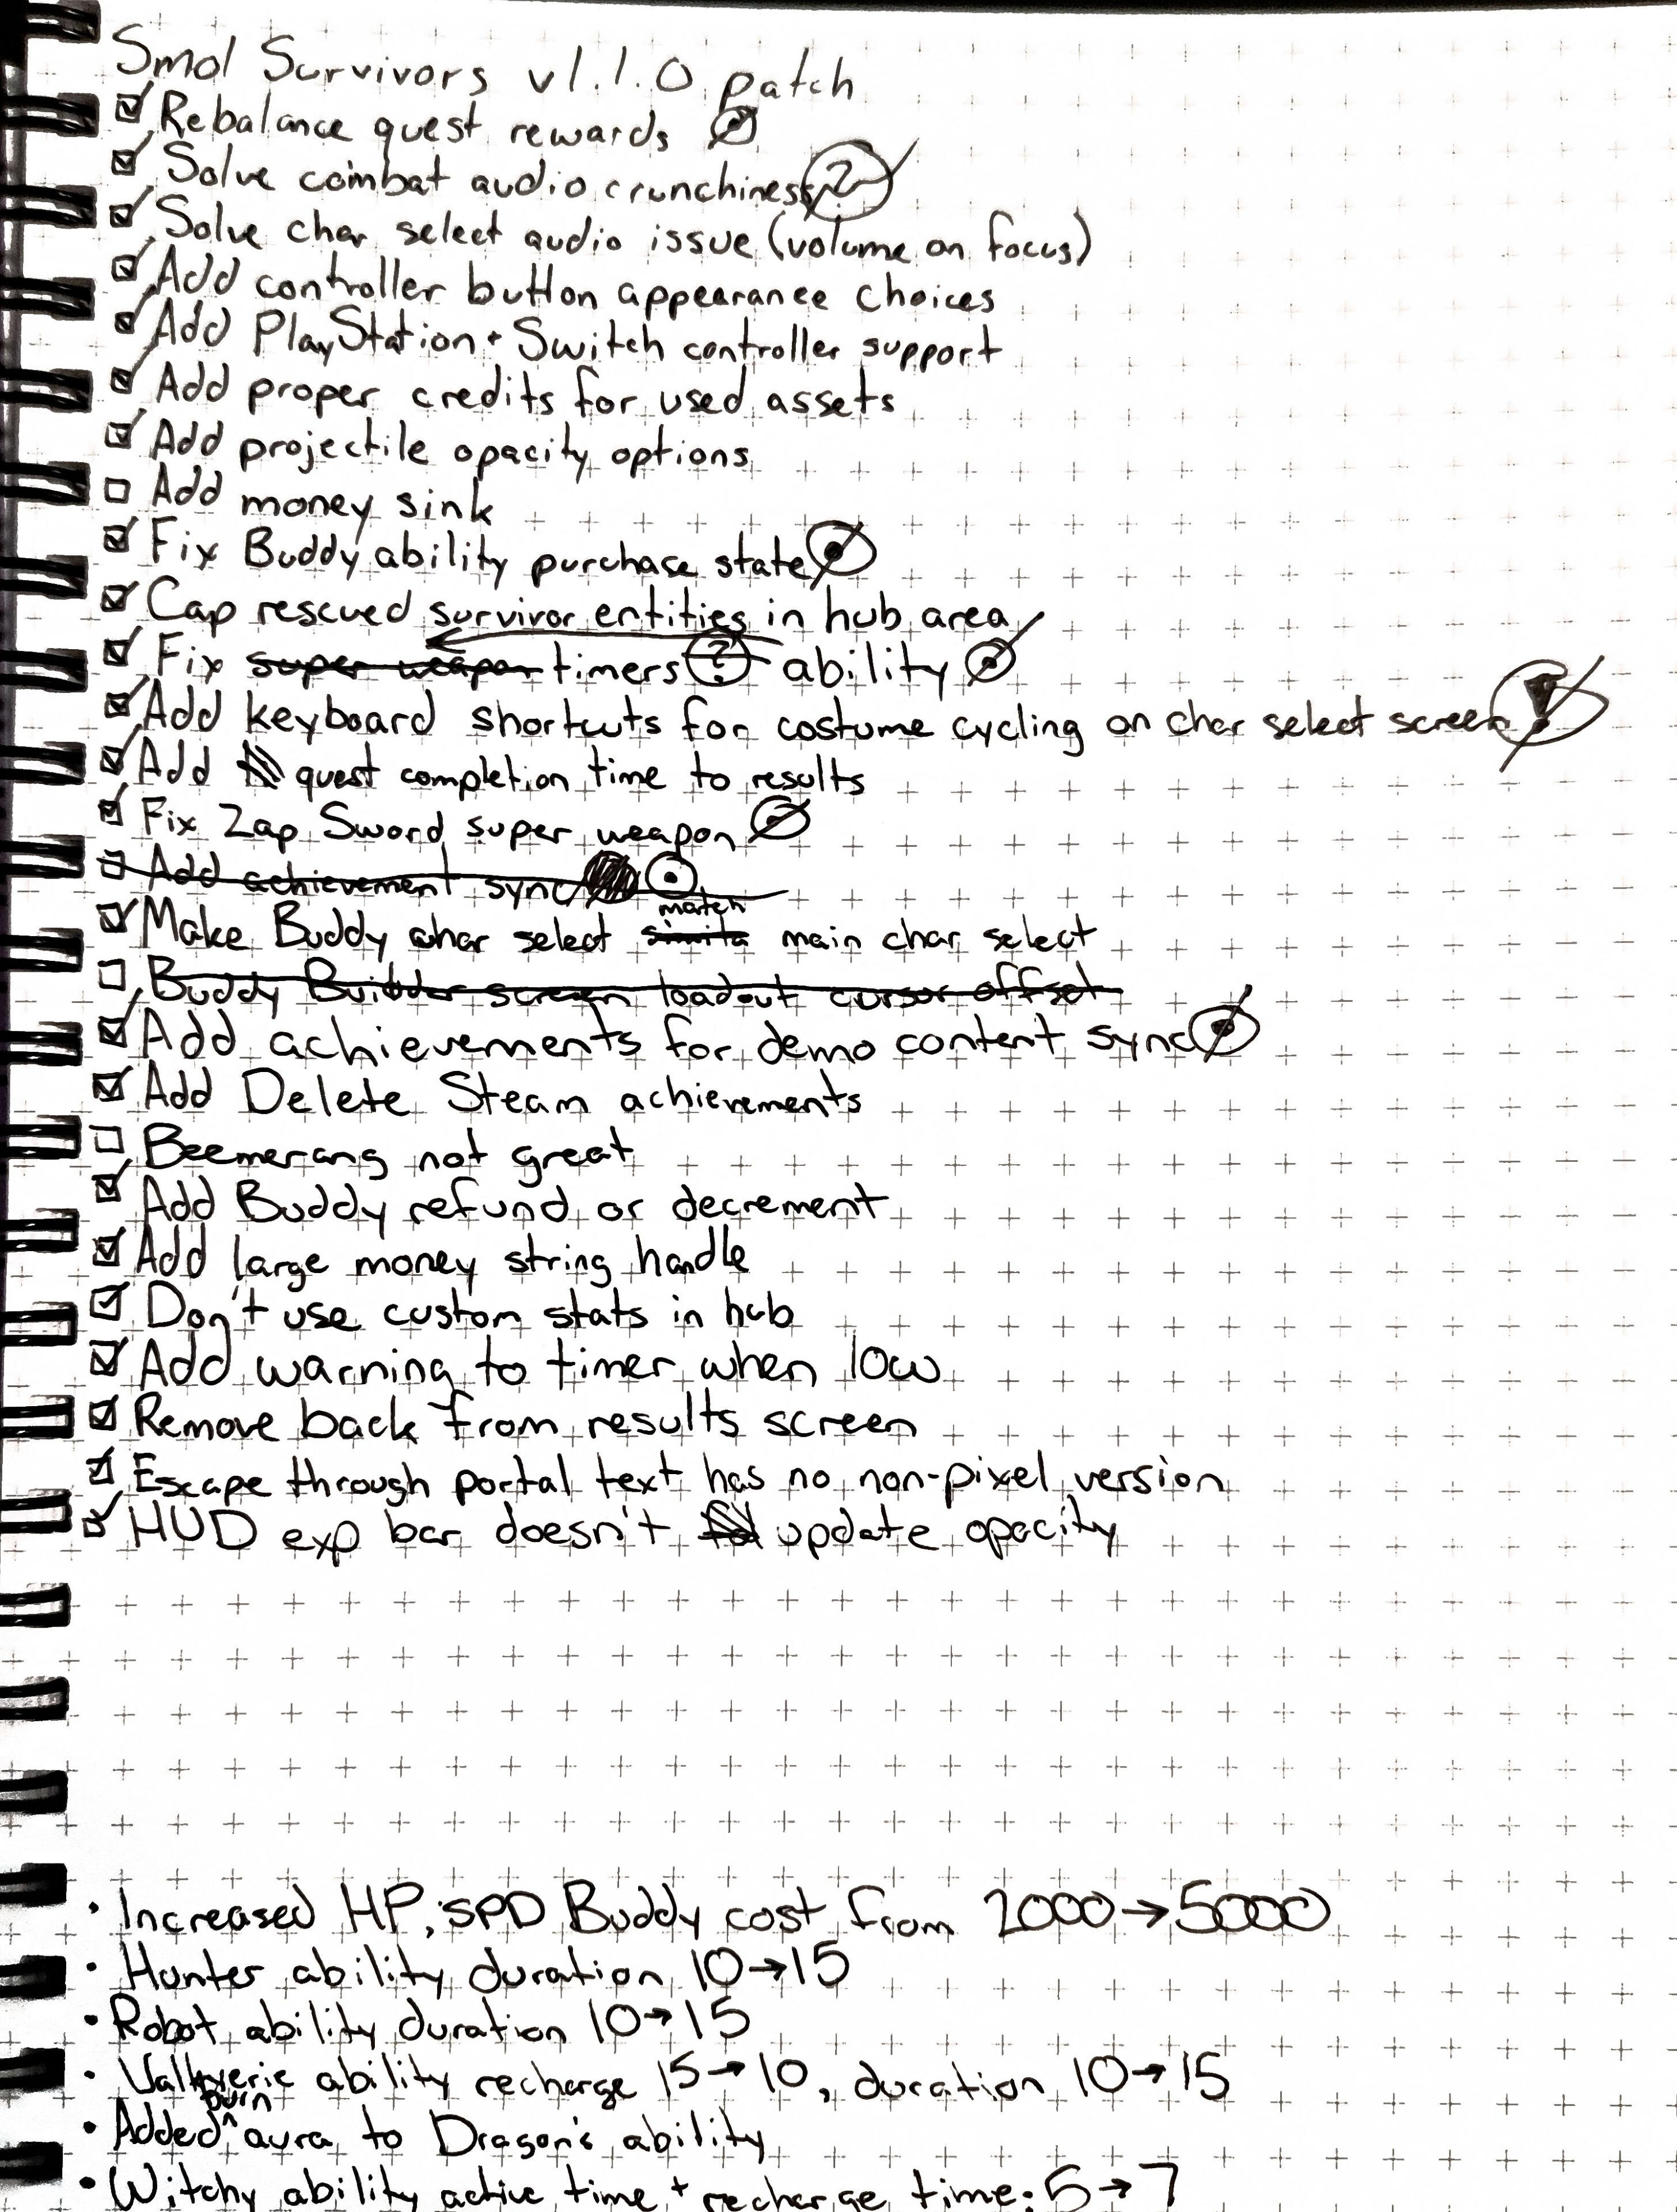 Smol Survivors v1.1.0 patch
☑ Rebalance quest rewards
☑ Solve combat audio crunchiness ?
☑ Solve char select audio issue (volume on focus)
☑ Add controller button appearance choices
☑ Add PlayStation + Switch controller support
☑ Add proper credits for used assets
☑ Add projectile opacity options
☐ Add money sink
☑ Fix Buddy ability purchase state
☑ Cap rescued survivor entities in hub area
☑ Fix super weapon timers ? ability
☑ Add keyboard shortcuts for costume cycling on char select screen !
☑ Add quest completion time to results
☑ Fix Zap Sword super weapon
☐ Add achievement sync
☑ Make Buddy char select match main char select
☐ Buddy Builder screen loadout cursor offset
☑ Add achievements for demo content sync
☑ Add Delete Steam achievements
☐ Beemerang not great
☑ Add Buddy refund or decrement
☑ Add large money string handle
☑ Don't use custom stats in hub
☑ Add warning to timer when low
☑ Remove back from results screen
☑ Escape through portal text has no non-pixel version
☑ HUD exp bar doesn't update opacity
• Increased HP, SPD Buddy cost from 2000→5000
• Hunter ability duration 10→15
• Robot ability duration 10→15
• Valkyerie ability recharge 15→10, duration 10→15
• Added burn aura to Dragon's ability
• Witchy ability active time + recharge time: 5→7